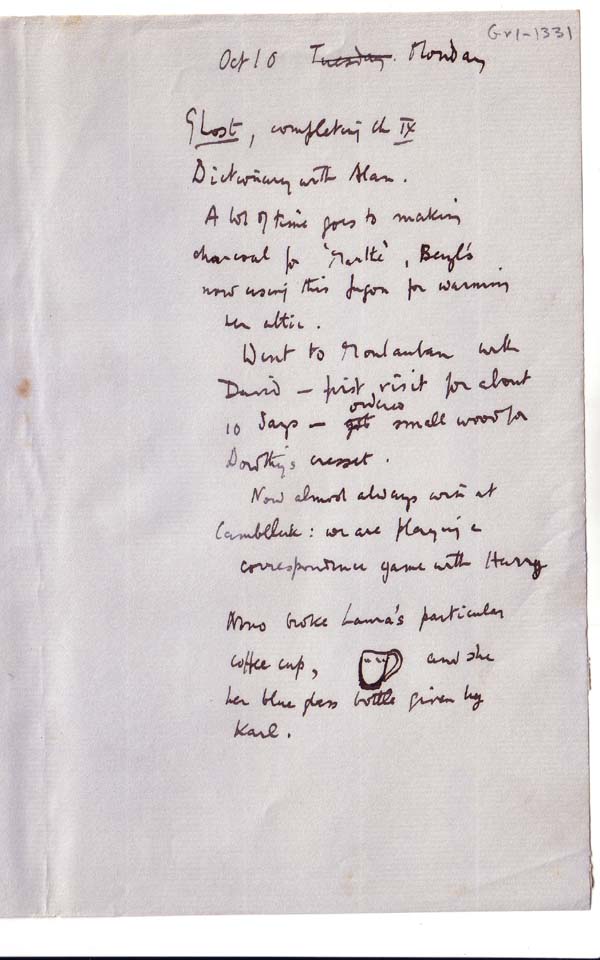 Gr1-1331
Oct 10 Tuesday. Monday
Ghost, completing ch IX
Dictionary with Alan.
A lot of time goes to making
charcoal for 'Marthe', Beryl's
now using this fugon for warming
her attic.
Went to Montauban with
David — first visit for about
10 days — got ordered small wood for
Dorothy's cresset.
Now almost always win at
Camelluk: we are playing a
correspondence game with Harry
Nono broke Laura's particular
coffee cup, and she
her blue glass bottle given by
Karl.